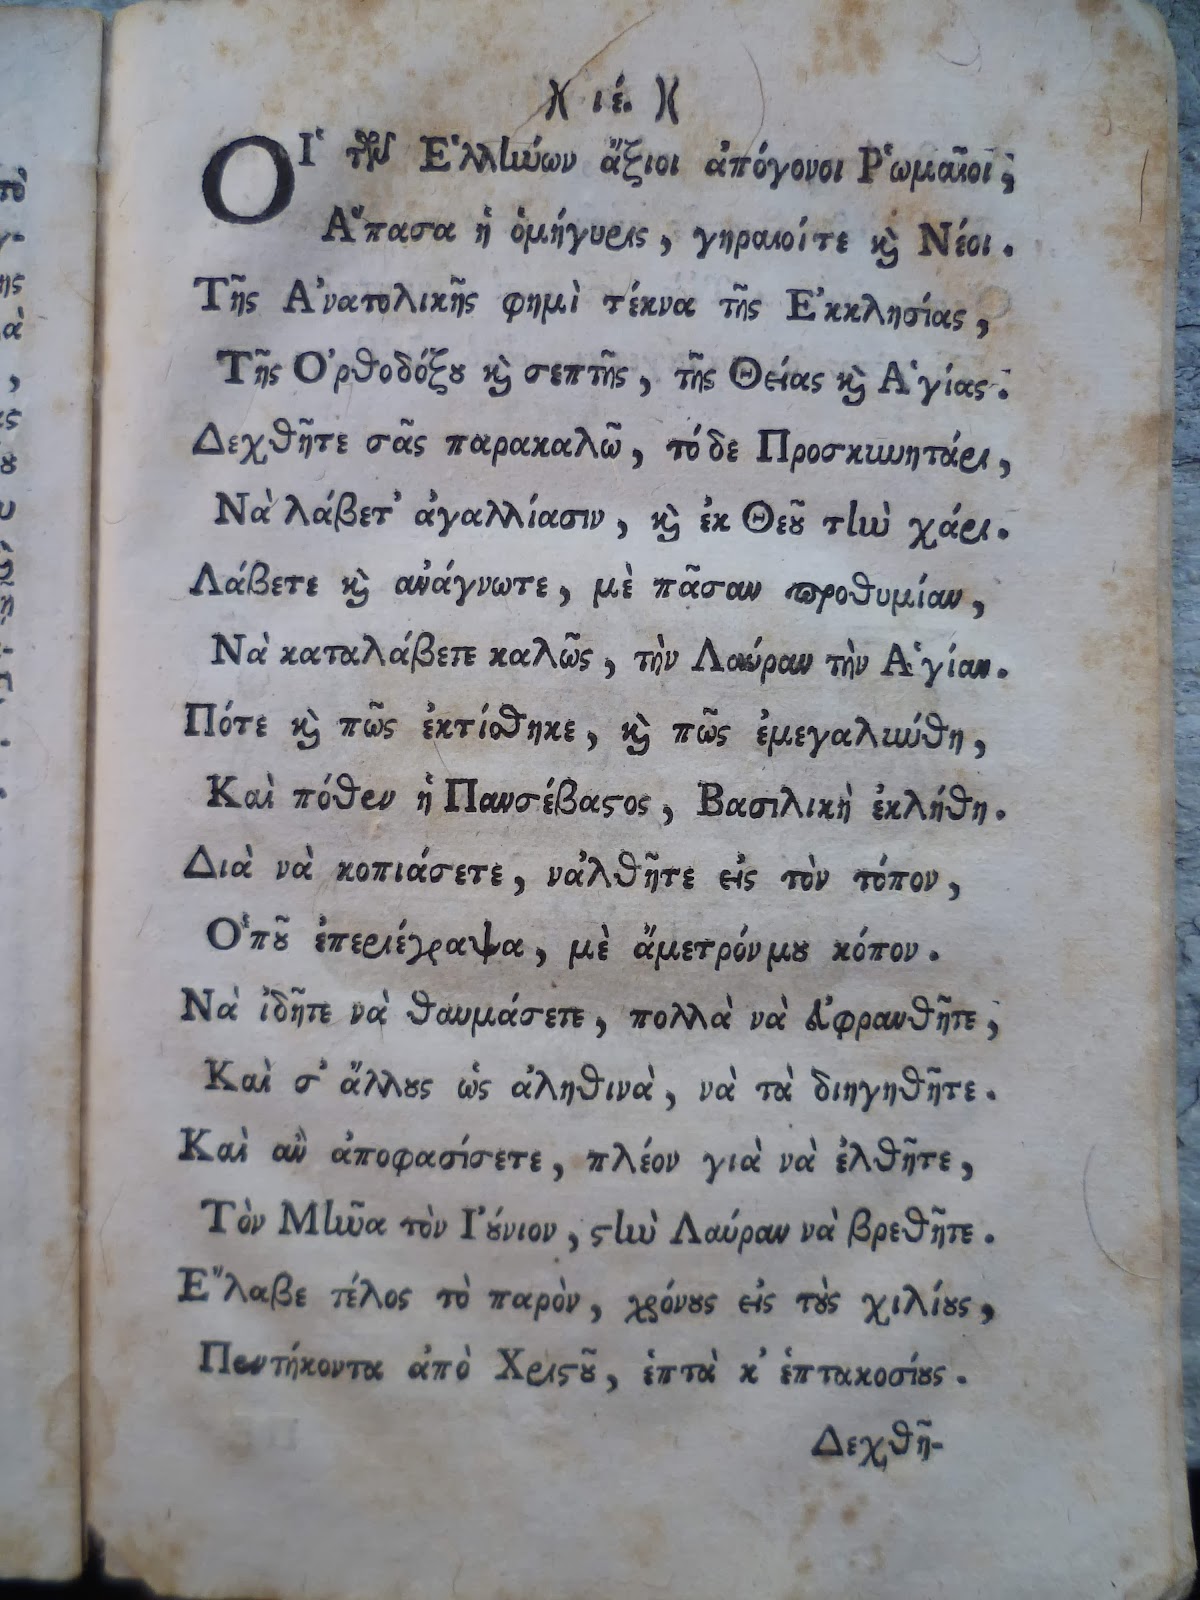 )( ιέ. )(
ΟΙ῾ τῶν Ε῾λλήνων ἄξιοι ἀπόγονοι Ρ῾ωμαῖοι;
Α῞πασα ἡ ὁμήγυρις, γηραιοίτε κὶ Νέοι.
Τῆς Α᾿νατολικῆς φημὶ τέκνα τῆς Ε᾿κκλησίας,
Τῆς Ο᾿ρθοδόξου κὶ σεπτῆς, τῆς Θείας κὶ Α῾γίας.
Δεχθῆτε σᾶς παρακαλῶ, τόδε Προσκυνητάρι,
Νὰ λάβετ᾿ ἀγαλλίασιν, κὶ ἐκ Θεοῦ τὴν χάρι.
Λάβετε κὶ ἀνάγνωτε, μὲ πᾶσαν προθυμίαν,
Νὰ καταλάβετε καλῶς, τὴν Λαύραν τὴν Α῾γίαν.
Πότε κὶ πῶς ἐκτίσθηκε, κὶ πῶς ἐμεγαλύνθη,
Καὶ πόθεν ἡ Πανσέβαστος, Βασιλικὴ ἐκλήθη.
Διὰ νὰ κοπιάσετε, νἀλθῆτε εἰς τὸν τόπον,
Ο῾ποῦ ἐπεριέγραψα, μὲ ἄμετρόν μου κόπον.
Νὰ ἰδῆτε νὰ θαυμάσετε, πολλὰ νὰ εὐφρανθῆτε;
Καὶ σ᾿ ἄλλους ὡς ἀληθινὰ, νὰ τὰ διηγηθῆτε.
Καὶ ἂν ἀποφασίσετε, πλέον γιὰ νὰ ἐλθῆτε,
Τὸν Μῆνα τὸν Ι᾿ούνιον, στὴν Λαύραν νὰ βρεθῆτε.
Ε῎λαβε τέλος τὸ παρὸν, χρόνους εἰς τοὺς χιλίους,
Πεντήκοντα ἀπὸ Χριστοῦ, ἑπτὰ κ᾿ ἑπτακοσίους.
Δεχθῆ-